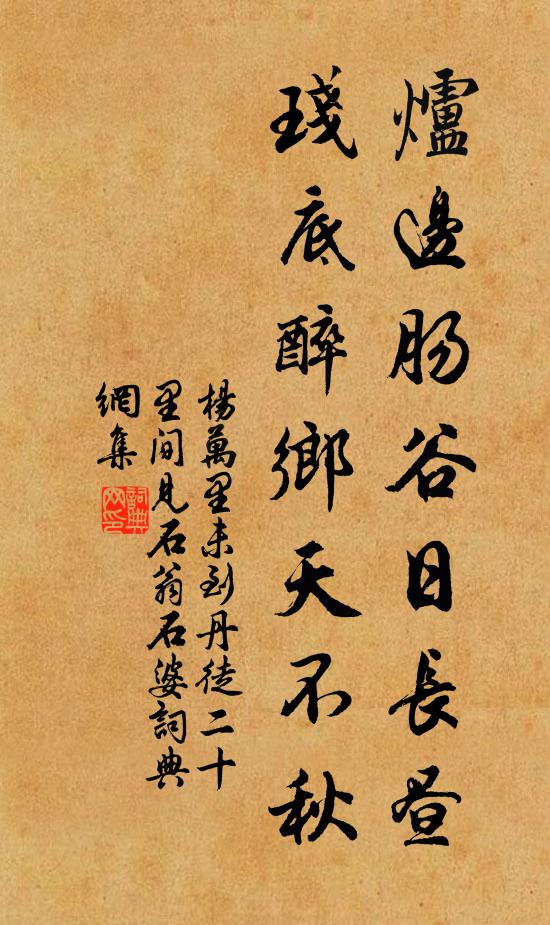 爐邊暘谷日長昼
琖底醉鄉天不秋
楊萬里未到丹徒二十
里間見石翁石婆詞典
網集
詞典
網印